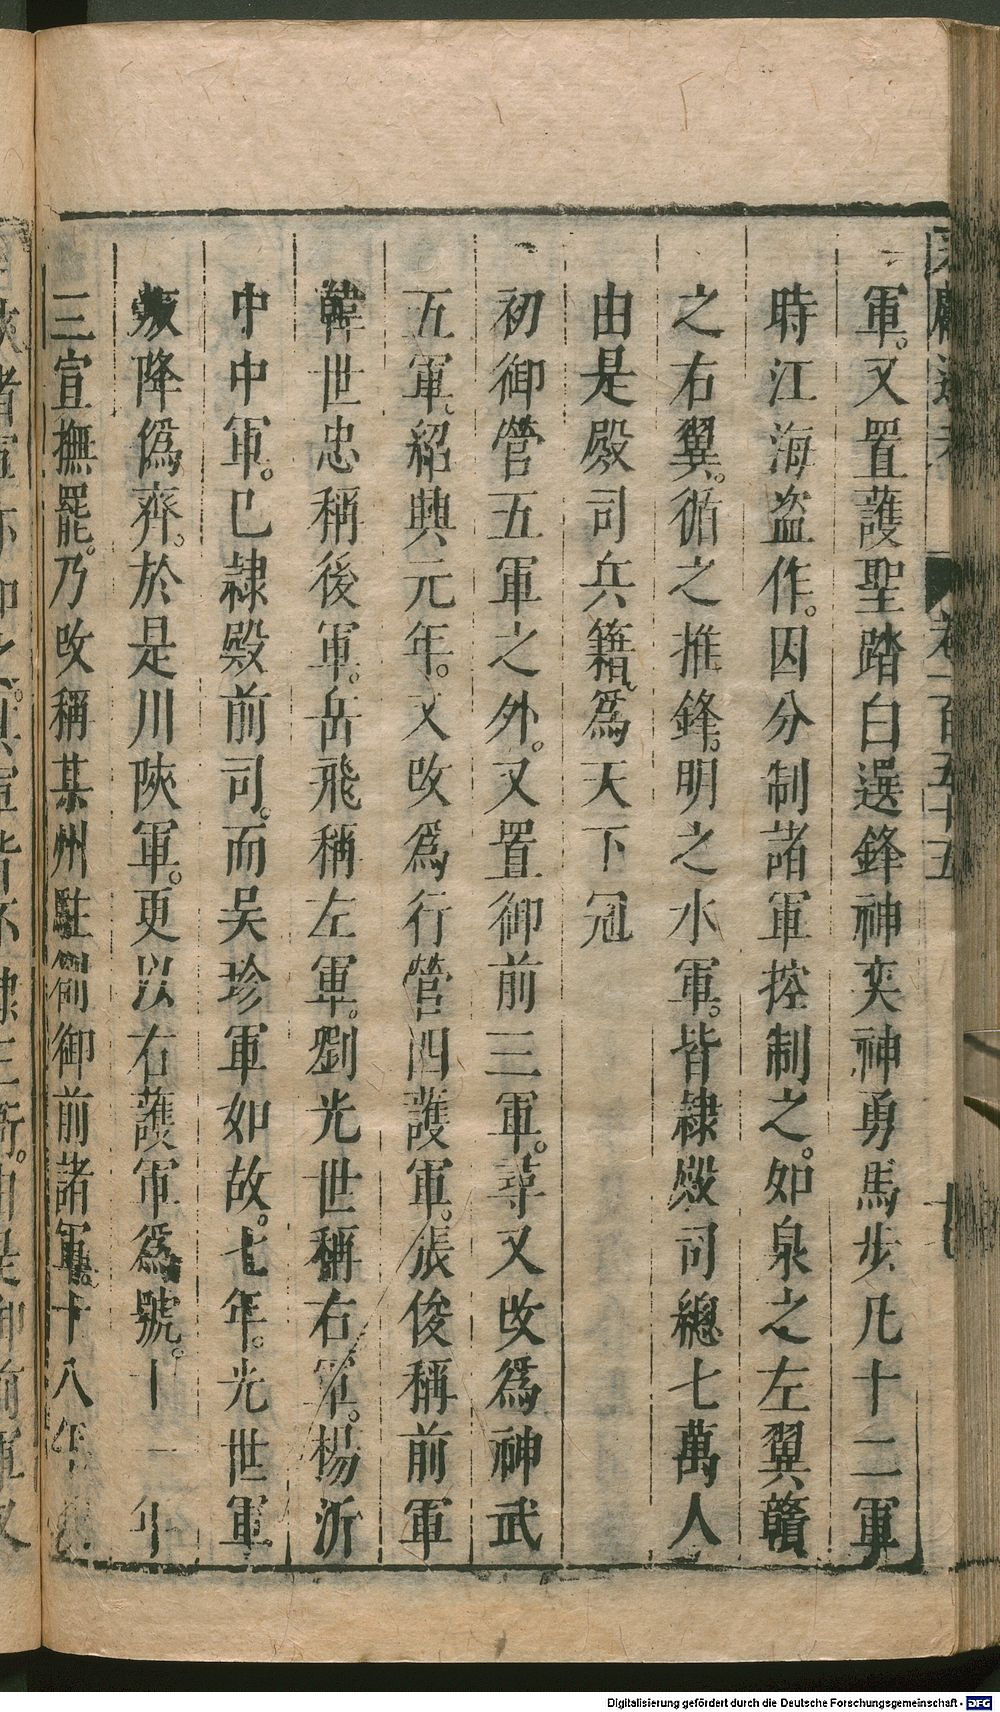 軍。又置護聖踏白選鋒神奕神勇馬步凡十二軍
時江海盜作。因分制諸軍控制之。如泉之左翼贛
之右翼。循之推鋒。明之水軍。皆隸殿司總七萬人
由是殿司兵籍為天下冠
初御營五軍之外。又置御前三軍。尋又改爲神武
五軍。紹興元年。又改爲行營四護軍。張俊稱前軍
韓世忠稱後軍。岳飛稱左軍。劉光世稱右軍。楊沂
中中軍。已隸殿前司。而吴玠軍如故。七年。光世軍
叛降僞齊。於是川陝軍。更以右護軍爲號。十一年
三宣撫罷。乃改稱某州駐劄御前諸軍。十八年
卷一百五十五
Digitalisierung gefördert durch die Deutsche Forschungsgemeinschaft - DFG